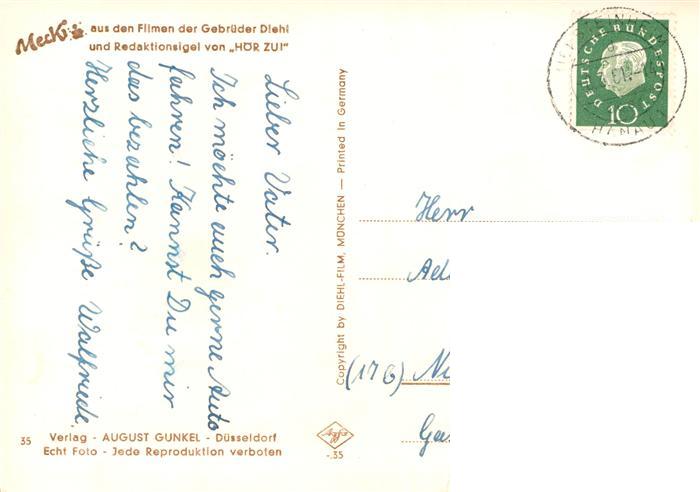 Mecki aus den Filmen der Gebrüder Diehl
und Redaktionsigel von „HÖR ZU!"
Lieber Vater.
Ich möchte auch gerne Auto
fahren! Kannst Du mir
das bezahlen?
Herzliche Grüße Walfriede.
35 Verlag - AUGUST GUNKEL - Düsseldorf
Echt Foto - Jede Reproduktion verboten
Copyright by DIEHL-FILM, MÜNCHEN — Printed in Germany
Agfa
-.35
DEUTSCHE BUNDESPOST
10
HANAU
Herr
(17b)